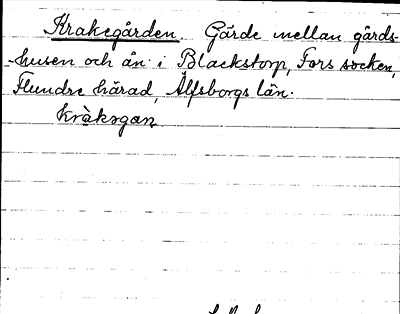 Krakegården. Gärde mellan gårds-
husen och ån i Blackstorp, Fors socken,
Flundre härad, Älfsborgs län.
kràk͜gan